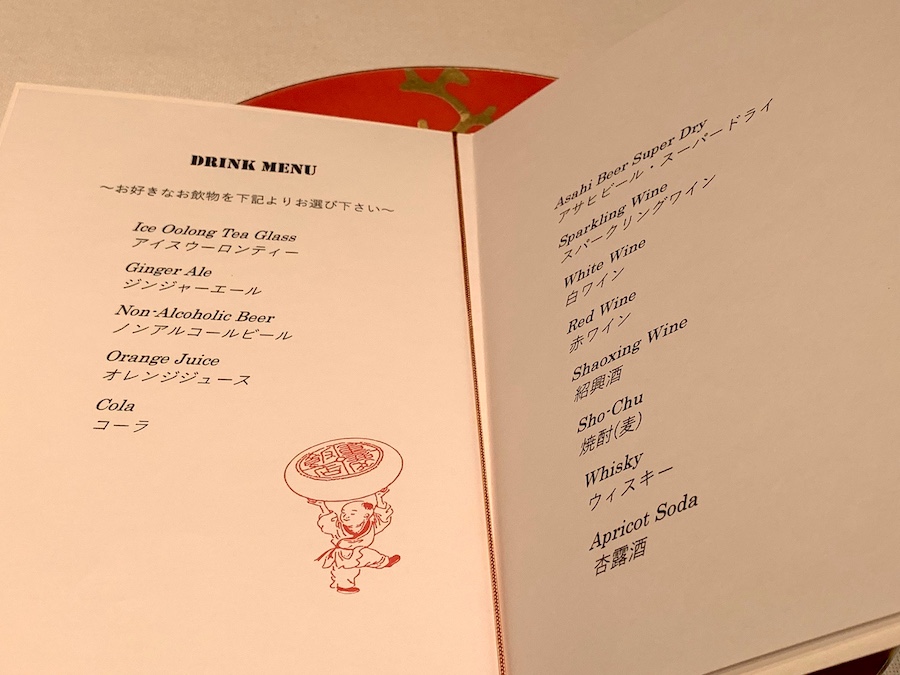 DRINK MENU
～お好きなお飲物を下記よりお選び下さい～
Ice Oolong Tea Glass
アイスウーロンティー
Ginger Ale
ジンジャーエール
Non-Alcoholic Beer
ノンアルコールビール
Orange Juice
オレンジジュース
Cola
コーラ
Asahi Beer Super Dry
アサヒビール・スーパードライ
Sparkling Wine
スパークリングワイン
White Wine
白ワイン
Red Wine
赤ワイン
Shaoxing Wine
紹興酒
Sho-Chu
焼酎(麦)
Whisky
ウィスキー
Apricot Soda
杏露酒